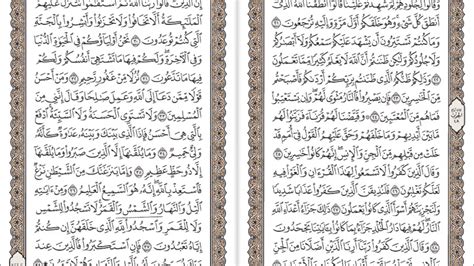 وَقَالُوا۟ لِجُلُودِهِمْ لِمَ شَهِدتُّمْ عَلَيْنَا قَالُوٓا۟ أَنطَقَنَا ٱللَّهُ ٱلَّذِىٓ
أَنطَقَ كُلَّ شَىْءٍ وَهُوَ خَلَقَكُمْ أَوَّلَ مَرَّةٍ وَإِلَيْهِ تُرْجَعُونَ ٢١
وَمَا كُنتُمْ تَسْتَتِرُونَ أَن يَشْهَدَ عَلَيْكُمْ سَمْعُكُمْ وَلَآ أَبْصَٰرُكُمْ
وَلَا جُلُودُكُمْ وَلَٰكِن ظَنَنتُمْ أَنَّ ٱللَّهَ لَا يَعْلَمُ كَثِيرًا مِّمَّا تَعْمَلُونَ ٢٢
وَذَٰلِكُمْ ظَنُّكُمُ ٱلَّذِى ظَنَنتُم بِرَبِّكُمْ أَرْدَىٰكُمْ فَأَصْبَحْتُم
مِّنَ ٱلْخَٰسِرِينَ ٢٣ فَإِن يَصْبِرُوا۟ فَٱلنَّارُ مَثْوًى لَّهُمْ وَإِن يَسْتَعْتِبُوا۟
فَمَا هُم مِّنَ ٱلْمُعْتَبِينَ ٢٤ وَقَيَّضْنَا لَهُمْ قُرَنَآءَ فَزَيَّنُوا۟ لَهُم
مَّا بَيْنَ أَيْدِيهِمْ وَمَا خَلْفَهُمْ وَحَقَّ عَلَيْهِمُ ٱلْقَوْلُ فِىٓ أُمَمٍ قَدْ
خَلَتْ مِن قَبْلِهِم مِّنَ ٱلْجِنِّ وَٱلْإِنسِ إِنَّهُمْ كَانُوا۟ خَٰسِرِينَ ٢٥
وَقَالَ ٱلَّذِينَ كَفَرُوا۟ لَا تَسْمَعُوا۟ لِهَٰذَا ٱلْقُرْءَانِ وَٱلْغَوْا۟ فِيهِ
لَعَلَّكُمْ تَغْلِبُونَ ٢٦ فَلَنُذِيقَنَّ ٱلَّذِينَ كَفَرُوا۟ عَذَابًا شَدِيدًا
وَلَنَجْزِيَنَّهُمْ أَسْوَأَ ٱلَّذِى كَانُوا۟ يَعْمَلُونَ ٢٧ ذَٰلِكَ جَزَآءُ أَعْدَآءِ ٱللَّهِ
ٱلنَّارُ لَهُمْ فِيهَا دَارُ ٱلْخُلْدِ جَزَآءًۢ بِمَا كَانُوا۟ بِـَٔايَٰتِنَا يَجْحَدُونَ ٢٨
وَقَالَ ٱلَّذِينَ كَفَرُوا۟ رَبَّنَآ أَرِنَا ٱلَّذَيْنِ أَضَلَّانَا مِنَ ٱلْجِنِّ
إِنَّ ٱلَّذِينَ قَالُوا۟ رَبُّنَا ٱللَّهُ ثُمَّ ٱسْتَقَٰمُوا۟ تَتَنَزَّلُ عَلَيْهِمُ
ٱلْمَلَٰٓئِكَةُ أَلَّا تَخَافُوا۟ وَلَا تَحْزَنُوا۟ وَأَبْشِرُوا۟ بِٱلْجَنَّةِ ٱلَّتِى
كُنتُمْ تُوعَدُونَ ٣٠ نَحْنُ أَوْلِيَآؤُكُمْ فِى ٱلْحَيَوٰةِ ٱلدُّنْيَا
وَفِى ٱلْءَاخِرَةِ وَلَكُمْ فِيهَا مَا تَشْتَهِىٓ أَنفُسُكُمْ وَلَكُمْ
فِيهَا مَا تَدَّعُونَ ٣١ نُزُلًا مِّنْ غَفُورٍ رَّحِيمٍ ٣٢ وَمَنْ أَحْسَنُ
قَوْلًا مِّمَّن دَعَآ إِلَى ٱللَّهِ وَعَمِلَ صَٰلِحًا وَقَالَ إِنَّنِى مِنَ
ٱلْمُسْلِمِينَ ٣٣ وَلَا تَسْتَوِى ٱلْحَسَنَةُ وَلَا ٱلسَّيِّئَةُ ٱدْفَعْ
بِٱلَّتِى هِىَ أَحْسَنُ فَإِذَا ٱلَّذِى بَيْنَكَ وَبَيْنَهُۥ عَدَٰوَةٌ كَأَنَّهُۥ
وَلِىٌّ حَمِيمٌ ٣٤ وَمَا يُلَقَّىٰهَآ إِلَّا ٱلَّذِينَ صَبَرُوا۟ وَمَا يُلَقَّىٰهَآ
إِلَّا ذُو حَظٍّ عَظِيمٍ ٣٥ وَإِمَّا يَنزَغَنَّكَ مِنَ ٱلشَّيْطَٰنِ نَزْغٌ
فَٱسْتَعِذْ بِٱللَّهِ إِنَّهُۥ هُوَ ٱلسَّمِيعُ ٱلْعَلِيمُ ٣٦ وَمِنْ ءَايَٰتِهِ
ٱلَّيْلُ وَٱلنَّهَارُ وَٱلشَّمْسُ وَٱلْقَمَرُ لَا تَسْجُدُوا۟ لِلشَّمْسِ
وَلَا لِلْقَمَرِ وَٱسْجُدُوا۟ لِلَّهِ ٱلَّذِى خَلَقَهُنَّ إِن كُنتُمْ
إِيَّاهُ تَعْبُدُونَ ٣٧ فَإِنِ ٱسْتَكْبَرُوا۟ فَٱلَّذِينَ عِندَ